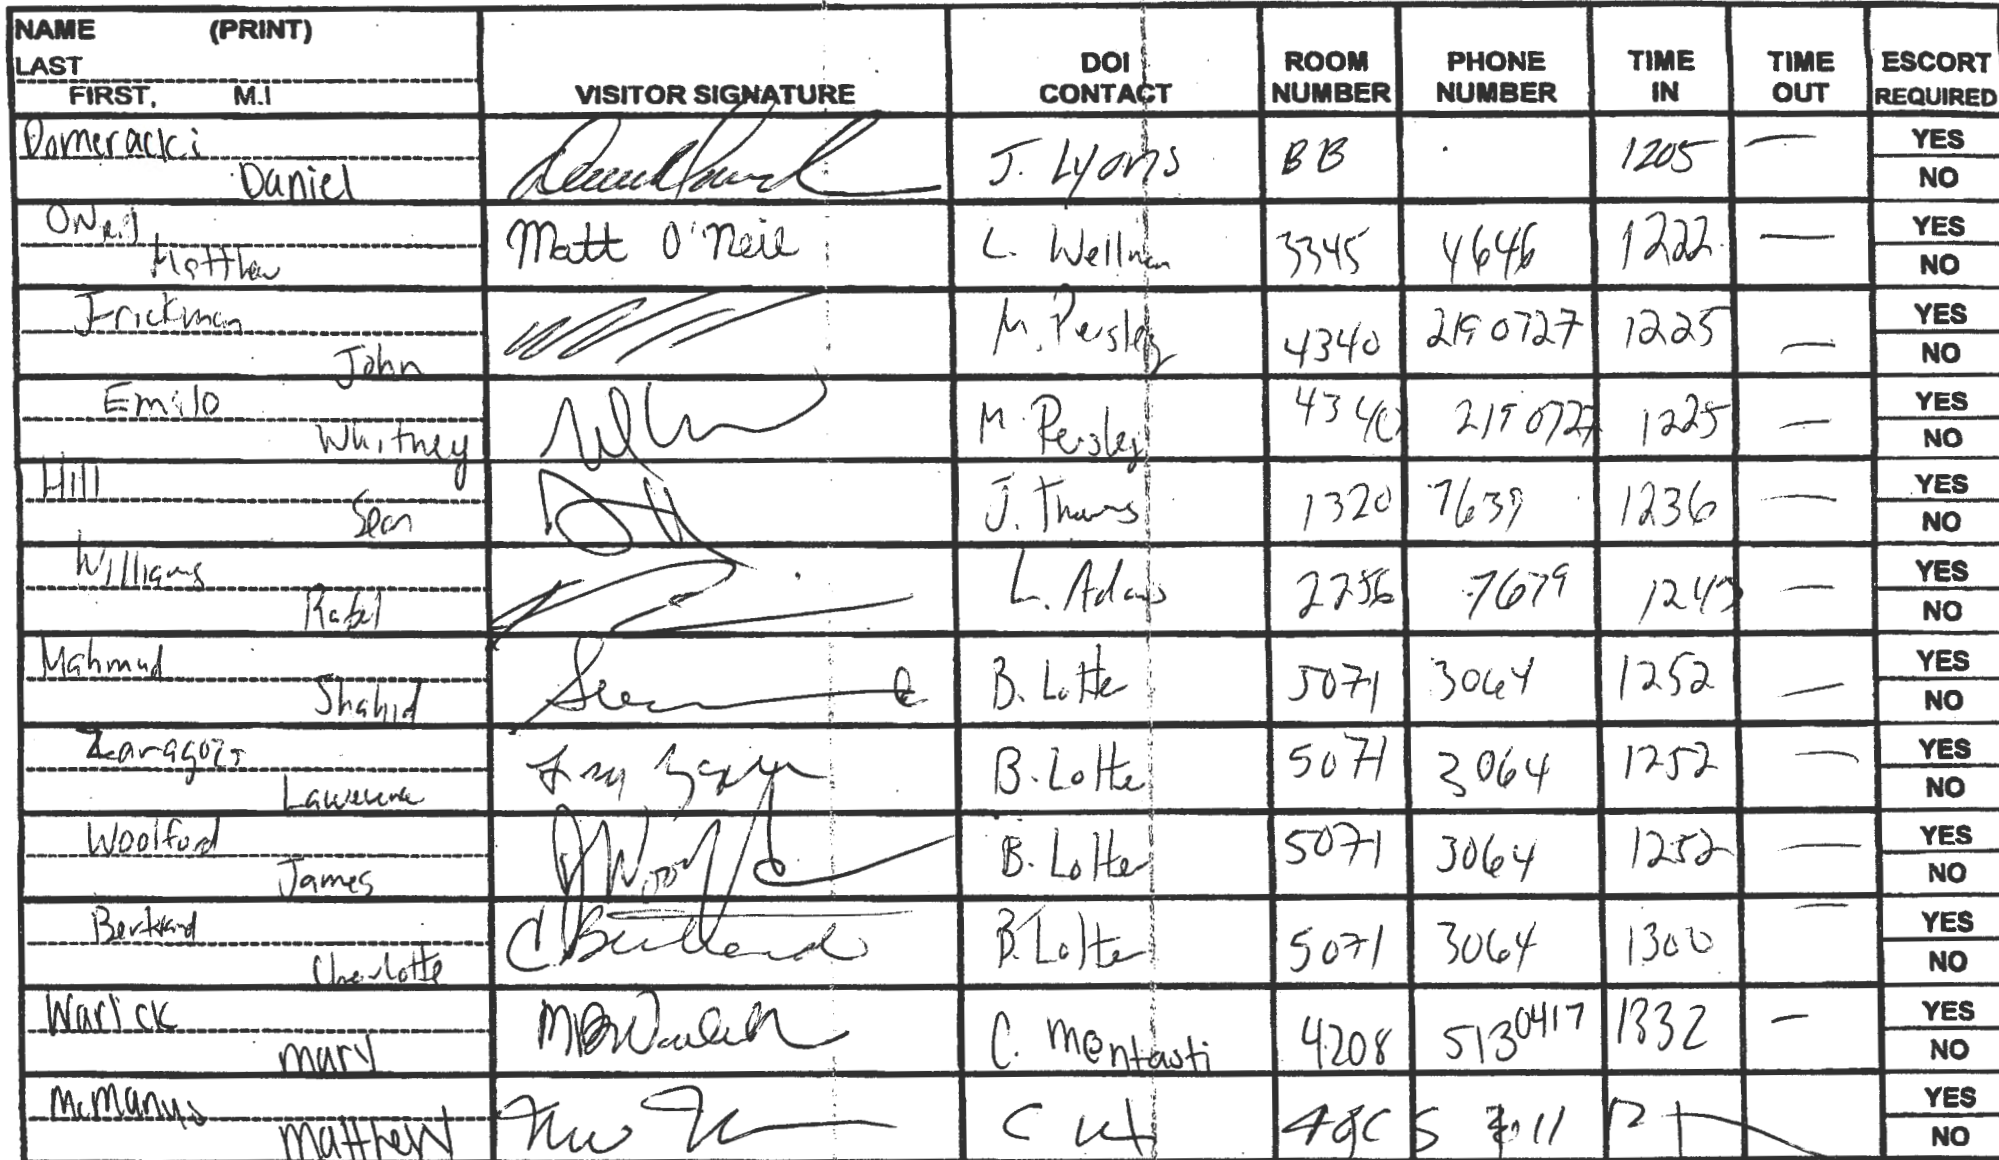 NAME (PRINT)
LAST
FIRST, M.I
VISITOR SIGNATURE
DOI CONTACT
ROOM NUMBER
PHONE NUMBER
TIME IN
TIME OUT
ESCORT REQUIRED
Domeracki
Daniel J. Lyons BB 1205 — YES NO
ONeil
Matthew Matt O'Neil L. Wellman 3345 4646 1222 — YES NO
Frickman
John M. Persley 4340 2190727 1225 — YES NO
Emilo
Whitney M. Persley 4340 2190727 1225 — YES NO
Hill
Sean J. Thomas 1320 7639 1236 — YES NO
Williams
Rafel L. Adams 2256 7679 1243 — YES NO
Mahmud
Shahid B. Lotter 5071 3064 1252 — YES NO
Zaragoza
Lawrence B. Lotter 5071 3064 1252 — YES NO
Woolford
James J Woolf B. Lotter 5071 3064 1252 — YES NO
Bertrand
Charlotte C Bertrand B. Lotter 5071 3064 1300 — YES NO
Warick
Mary C. Montasti 4208 5130417 1332 — YES NO
McManus
Matthew YES NO